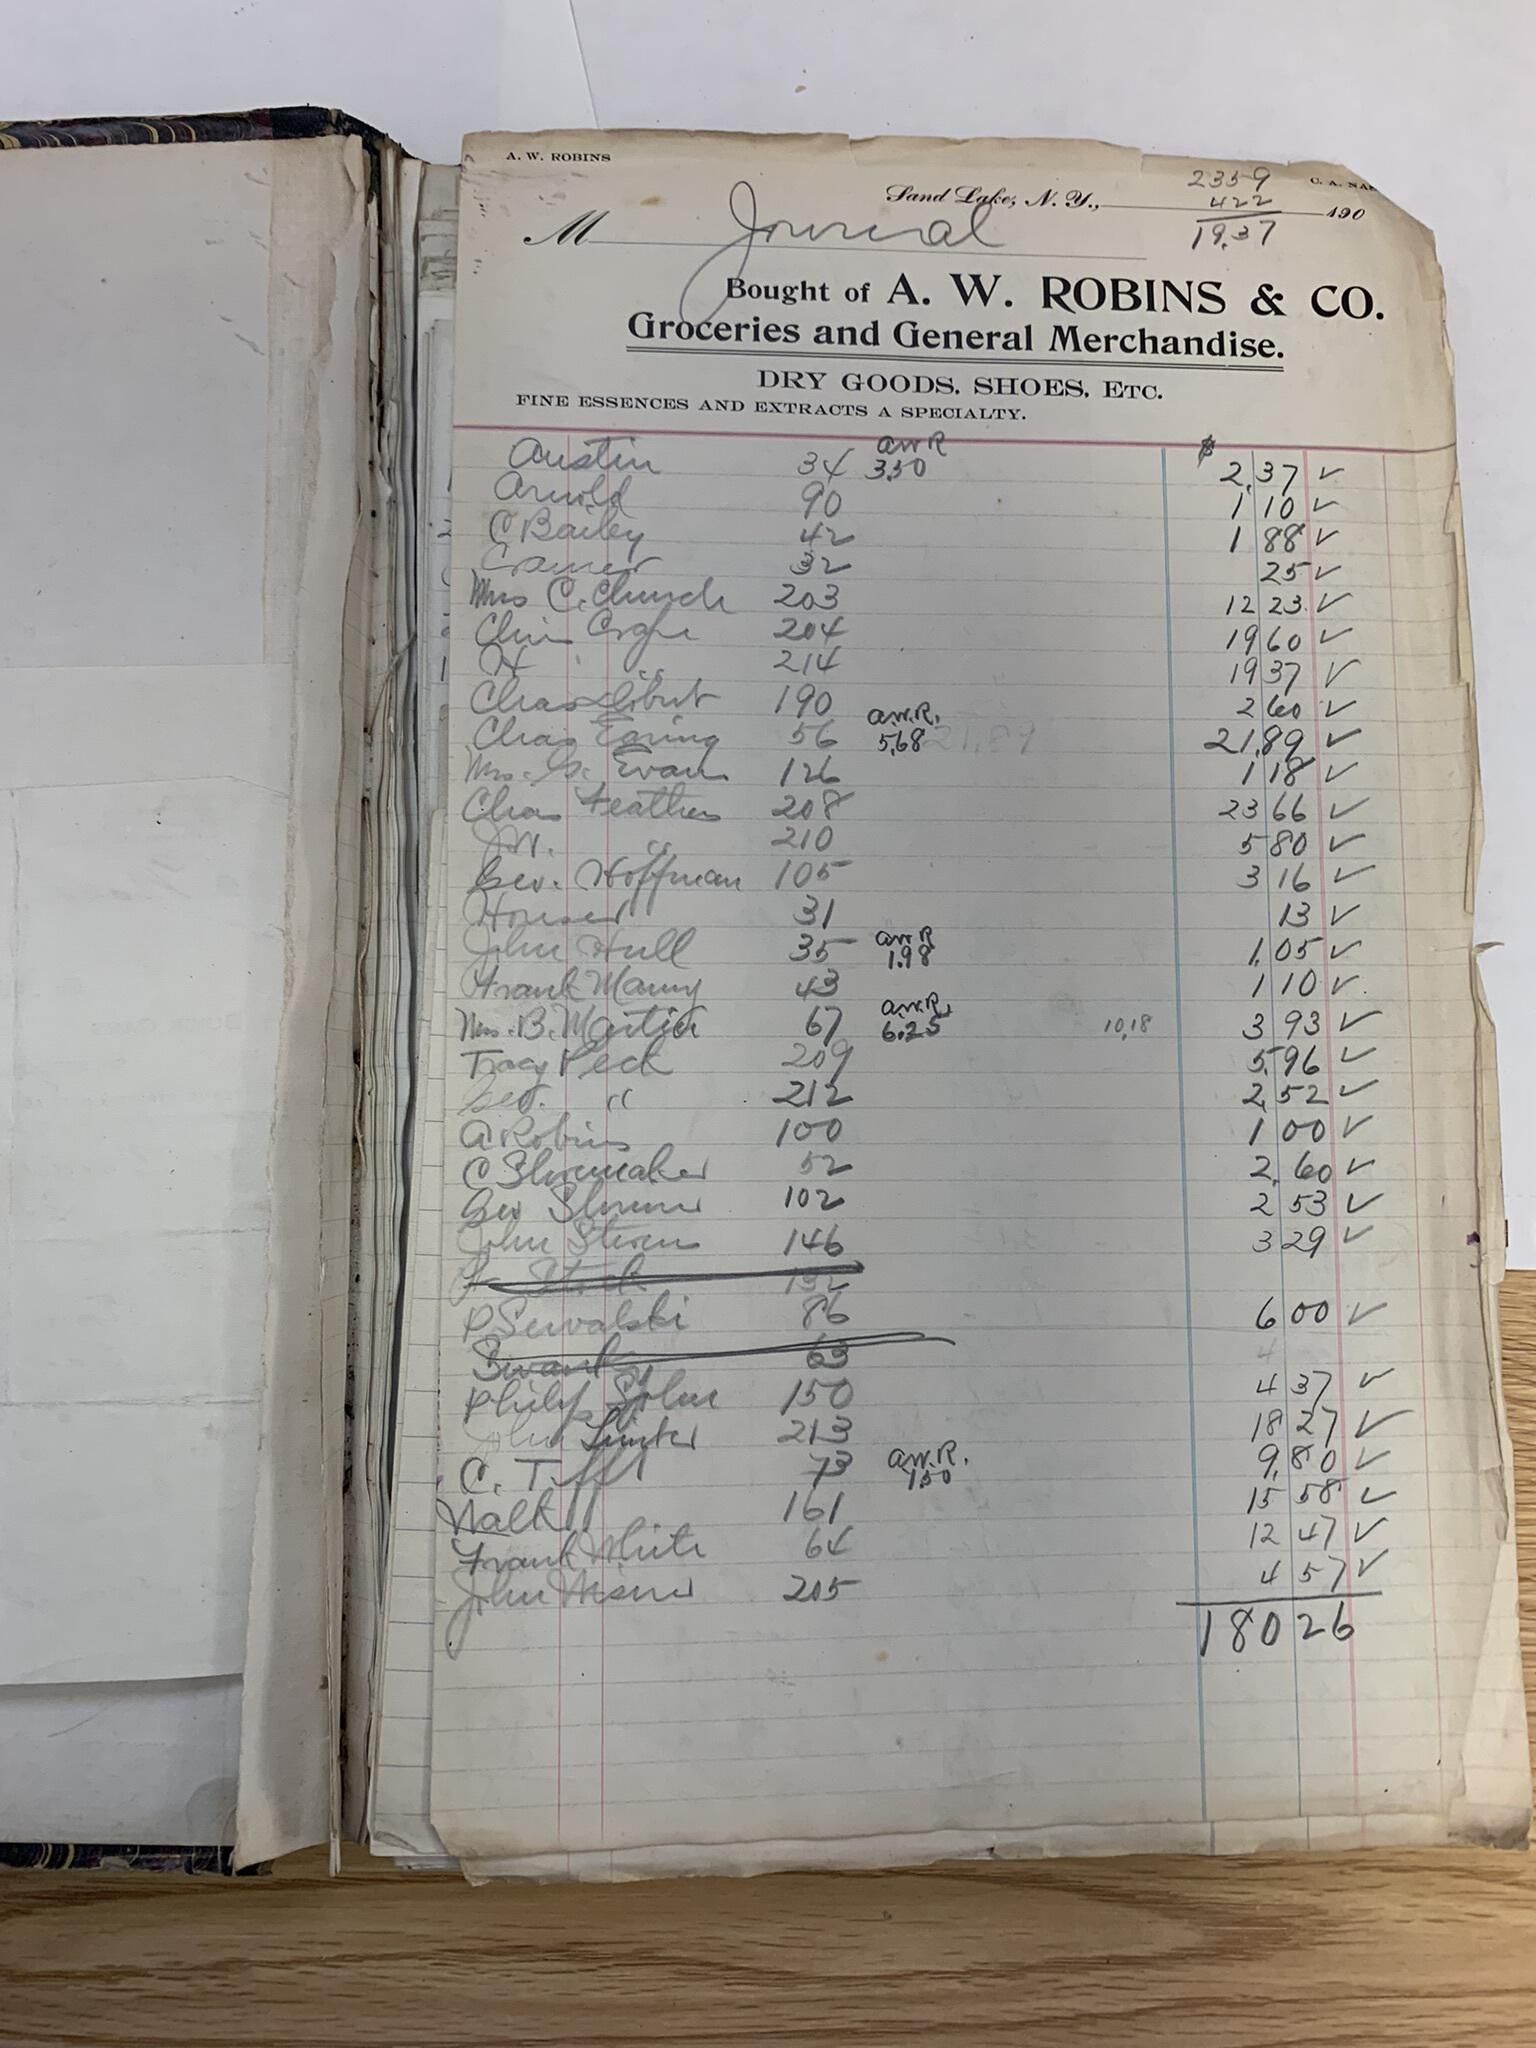 A. W. ROBINS
C. A. NA
2359
Sand Lake, N. Y., 422 190
M Journal 19.37
Bought of A. W. ROBINS & CO.
Groceries and General Merchandise.
DRY GOODS, SHOES, ETC.
FINE ESSENCES AND EXTRACTS A SPECIALTY.
AWR $
Austin 34 3.50 2.37 ✓
Arnold 90 1 10 ✓
C Bailey 42 1 88 ✓
Cramer 32 25 ✓
Mrs C. Church 203 12 23 ✓
204 19 60 ✓
H " 214 19 37 ✓
Chas 190 2 60 ✓
A.W.R.
Chas Earing 56 5.68 21.89 21.89 ✓
Mrs. G. Evans 126 1 18 ✓
Chas Feathers 208 23 66 ✓
J.W. " 210 5 80 ✓
Geo. Hoffman 105 3 16 ✓
Houser 31 13 ✓
AWR
John Hull 35 1.98 1.05 ✓
Frank Manny 43 1 10 ✓
A.W.R.
Mrs. B. Martin 67 6.25 10.18 3 93 ✓
Tracy Peck 209 5.96 ✓
Geo. " 212 2.52 ✓
A Robins 100 1 00 ✓
C Shumaker 52 2.60 ✓
Geo 102 2 53 ✓
John Stevens 146 3 29 ✓
132
P Suwalski 86 6 00 ✓
63 4
Philip 150 4 37 ✓
John 213 18 27 ✓
A.W.R.
C. Tifft 73 1.50 9.80 ✓
Walt 161 15 58 ✓
Frank White 64 12 47 ✓
John 205 4 57 ✓
180 26